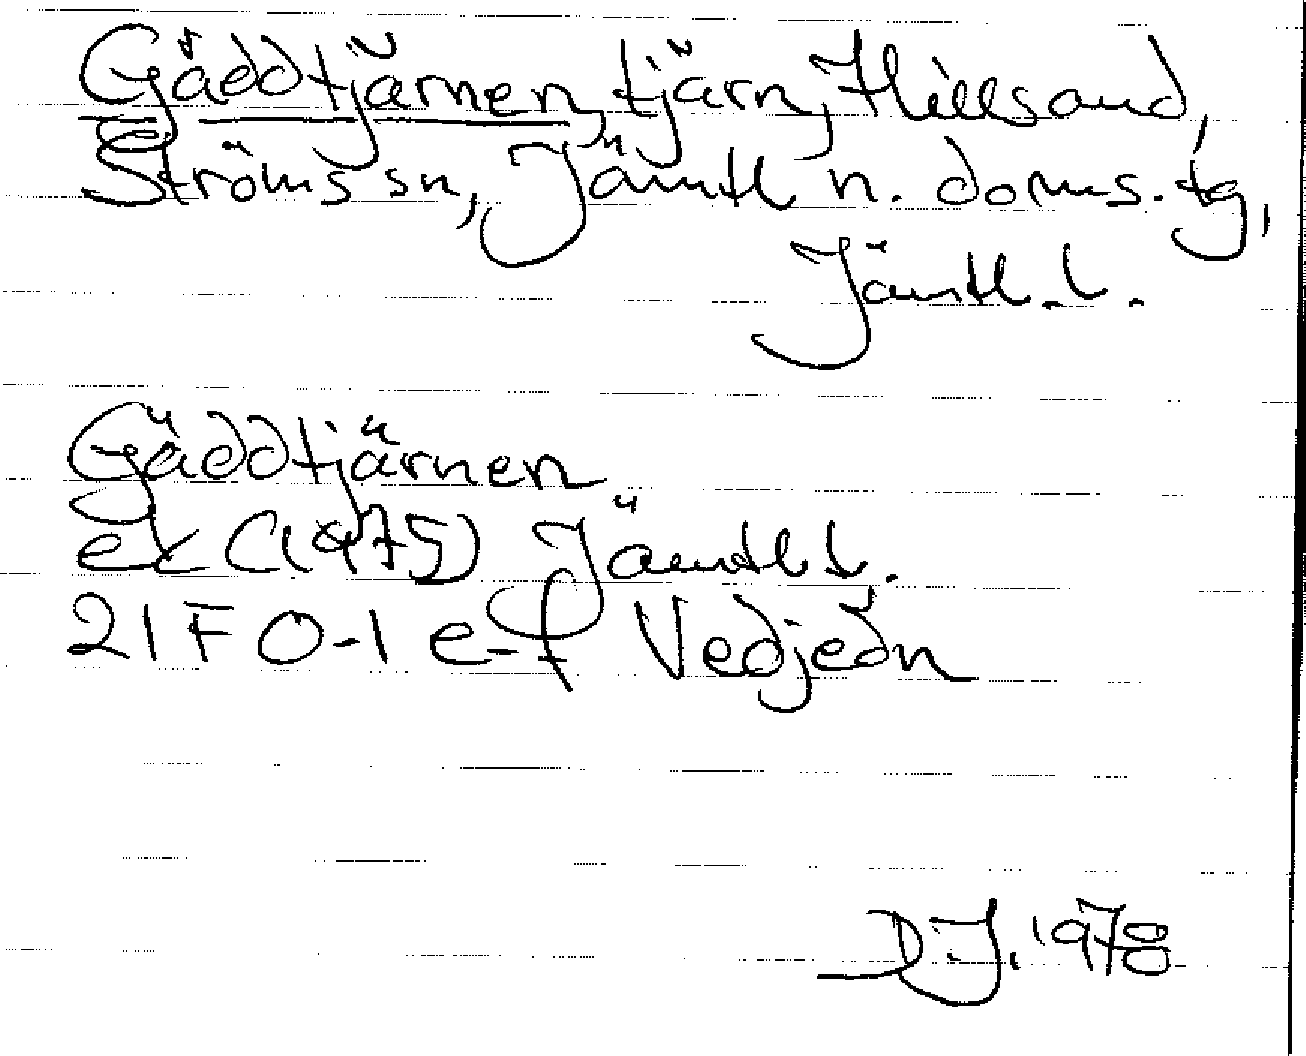 Gäddtjärnen, tjärn, Hillsand,
Ströms sn, Jämtl n. doms. tg,
Jämtl. l.
Gäddtjärnen
ek (1975) Jämtl l.
21 F 0-1 e-f Vedjeön
DJ. 1978